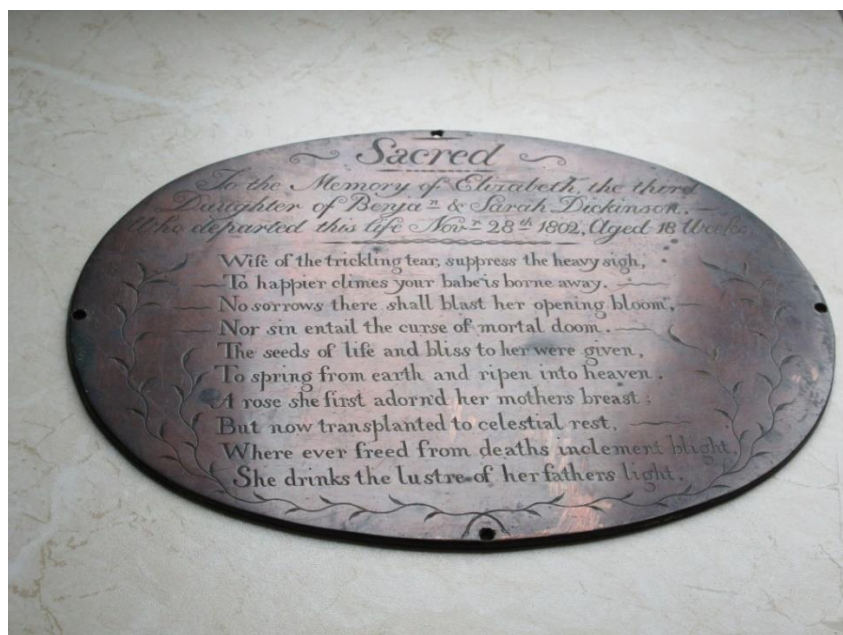 Sacred
To the Memory of Elizabeth, the third
Daughter of Benjaⁿ & Sarah Dickinson.
Who departed this life Novʳ 28ᵗʰ 1802, Aged 18 Weeks.
Wife of the trickling tear, suppress the heavy sigh,
To happier climes your babe is borne away.
No sorrows there shall blast her opening bloom,
Nor sin entail the curse of mortal doom.
The seeds of life and bliss to her were given,
To spring from earth and ripen into heaven.
A rose she first adorn'd her mothers breast;
But now transplanted to celestial rest,
Where ever freed from deaths inclement blight,
She drinks the lustre of her fathers light.